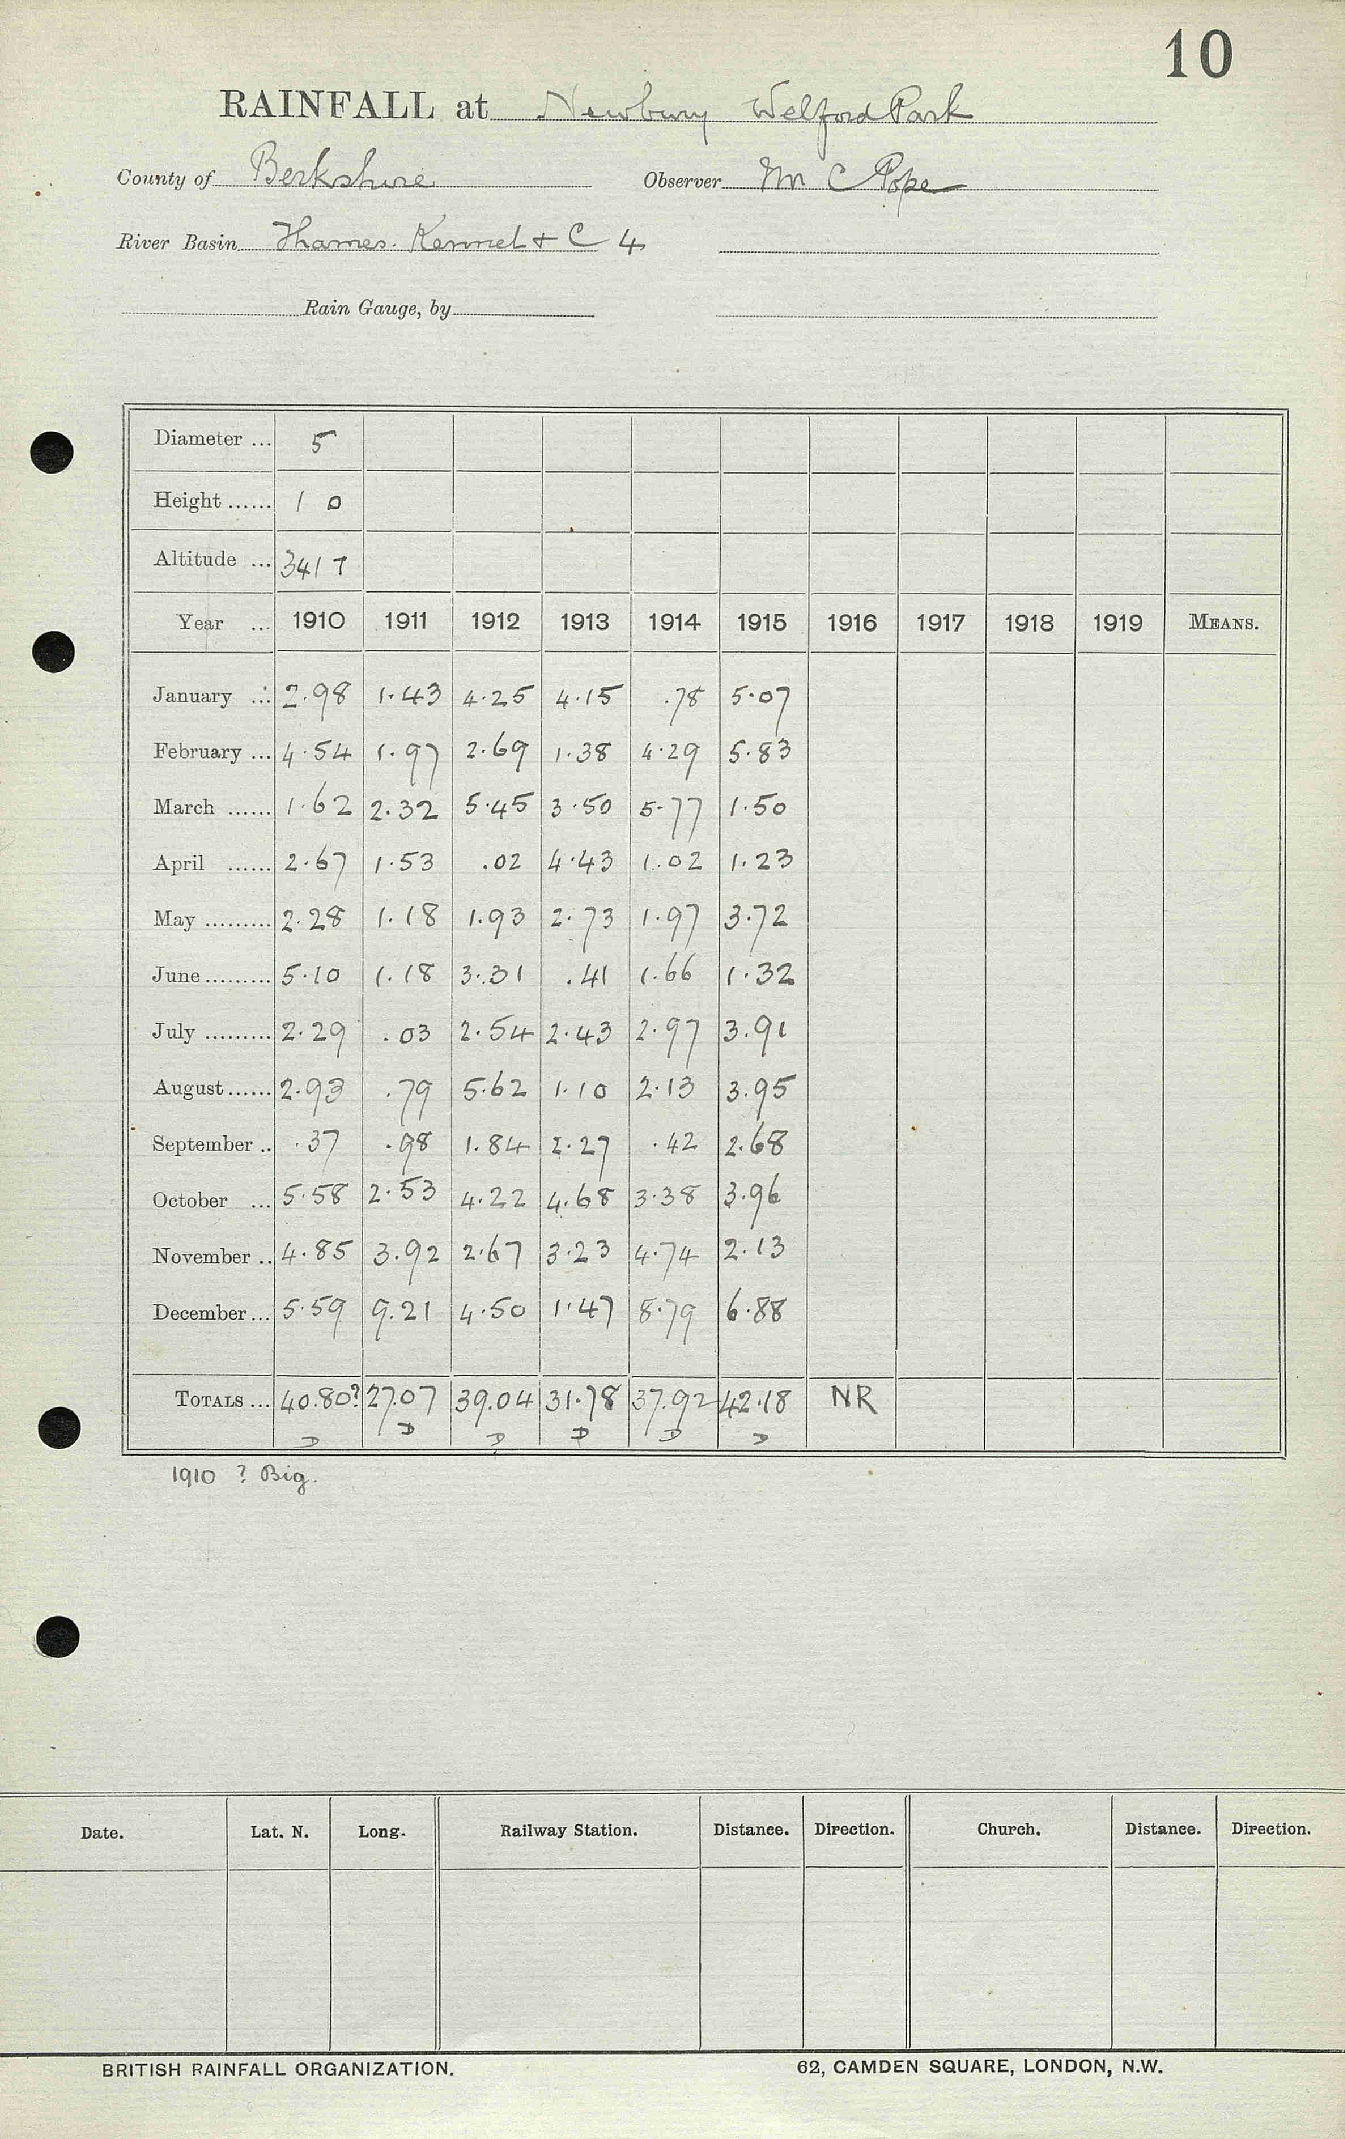 10
RAINFALL at Newbury Welford Park
County of Berkshire Observer Mr C Pope
River Basin Thames. Kennet & C 4
Rain Gauge, by
Diameter ... 5
Height ...... 1 0
Altitude ... 341 T
Year ... 1910 1911 1912 1913 1914 1915 1916 1917 1918 1919 MEANS.
January ... 2.98 1.43 4.25 4.15 .78 5.07
February ... 4.54 1.97 2.69 1.38 4.29 5.83
March ...... 1.62 2.32 5.45 3.50 5.77 1.50
April ...... 2.67 1.53 .02 4.43 1.02 1.23
May ......... 2.28 1.18 1.93 2.73 1.97 3.72
June ......... 5.10 1.18 3.31 .41 1.66 1.32
July ......... 2.29 .03 2.54 2.43 2.97 3.91
August ...... 2.93 .79 5.62 1.10 2.13 3.95
September .. .37 .98 1.84 2.27 .42 2.68
October ... 5.58 2.53 4.22 4.68 3.38 3.96
November .. 4.85 3.92 2.67 3.23 4.74 2.13
December ... 5.59 9.21 4.50 1.47 8.79 6.88
TOTALS ... 40.80? 27.07 39.04 31.78 37.92 42.18 NR
D D D D D D
1910 ? Big.
Date. Lat. N. Long. Railway Station. Distance. Direction. Church. Distance. Direction.
BRITISH RAINFALL ORGANIZATION. 62, CAMDEN SQUARE, LONDON, N.W.